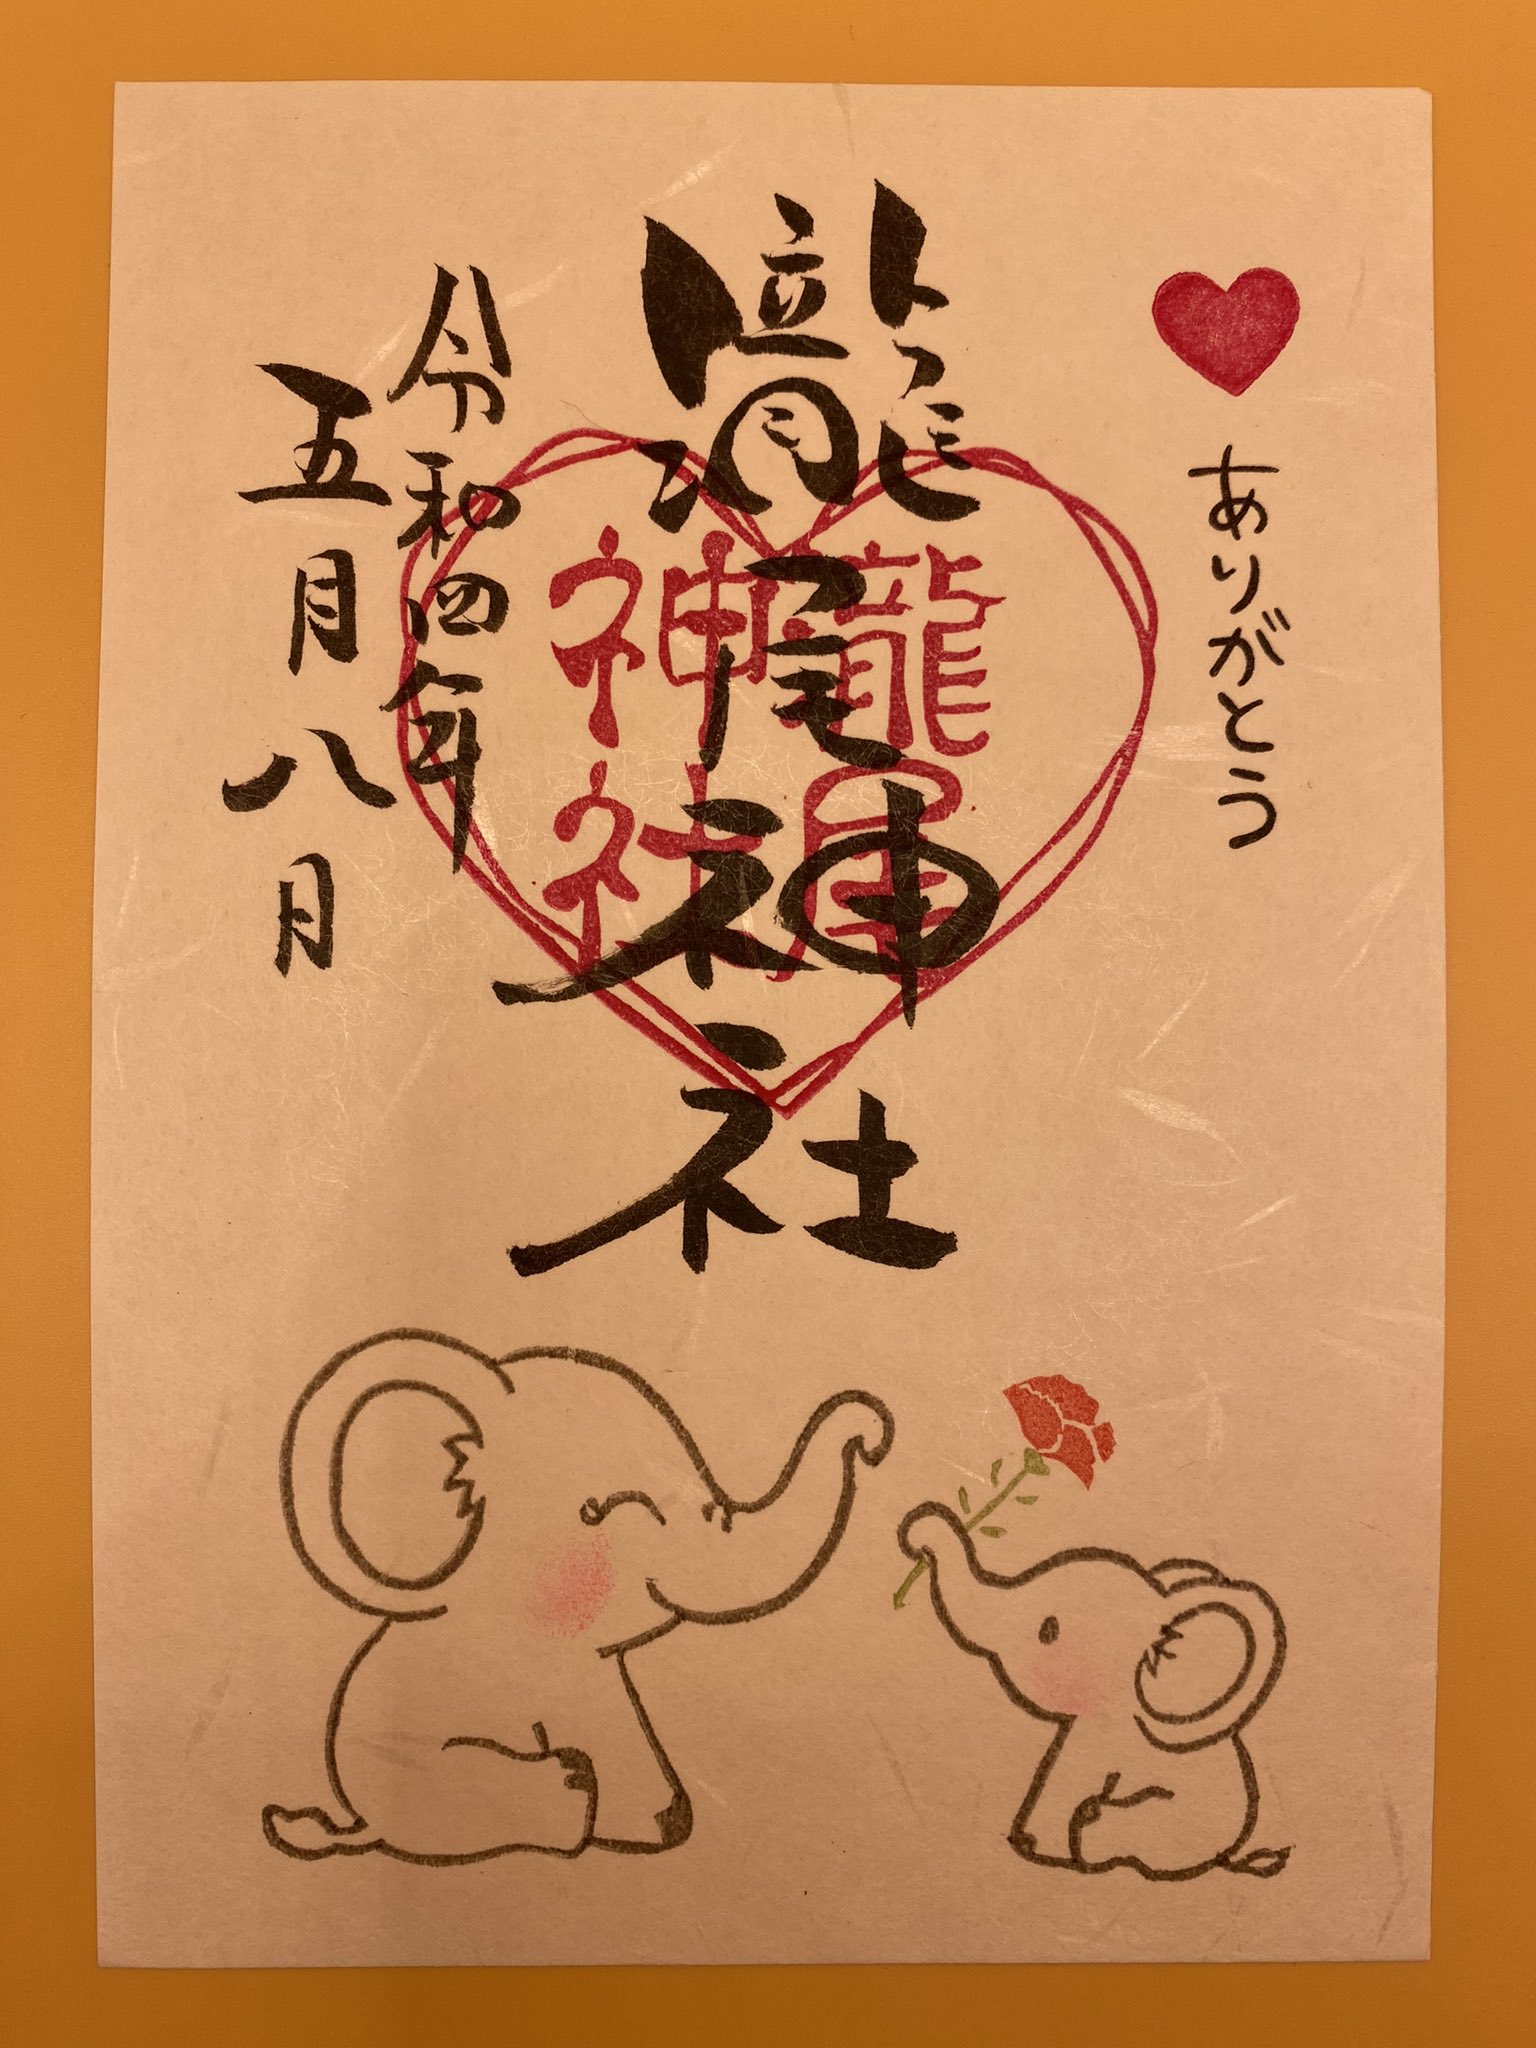 ありがとう
瀧尾神社
瀧尾
神社
令和四年
五月八日